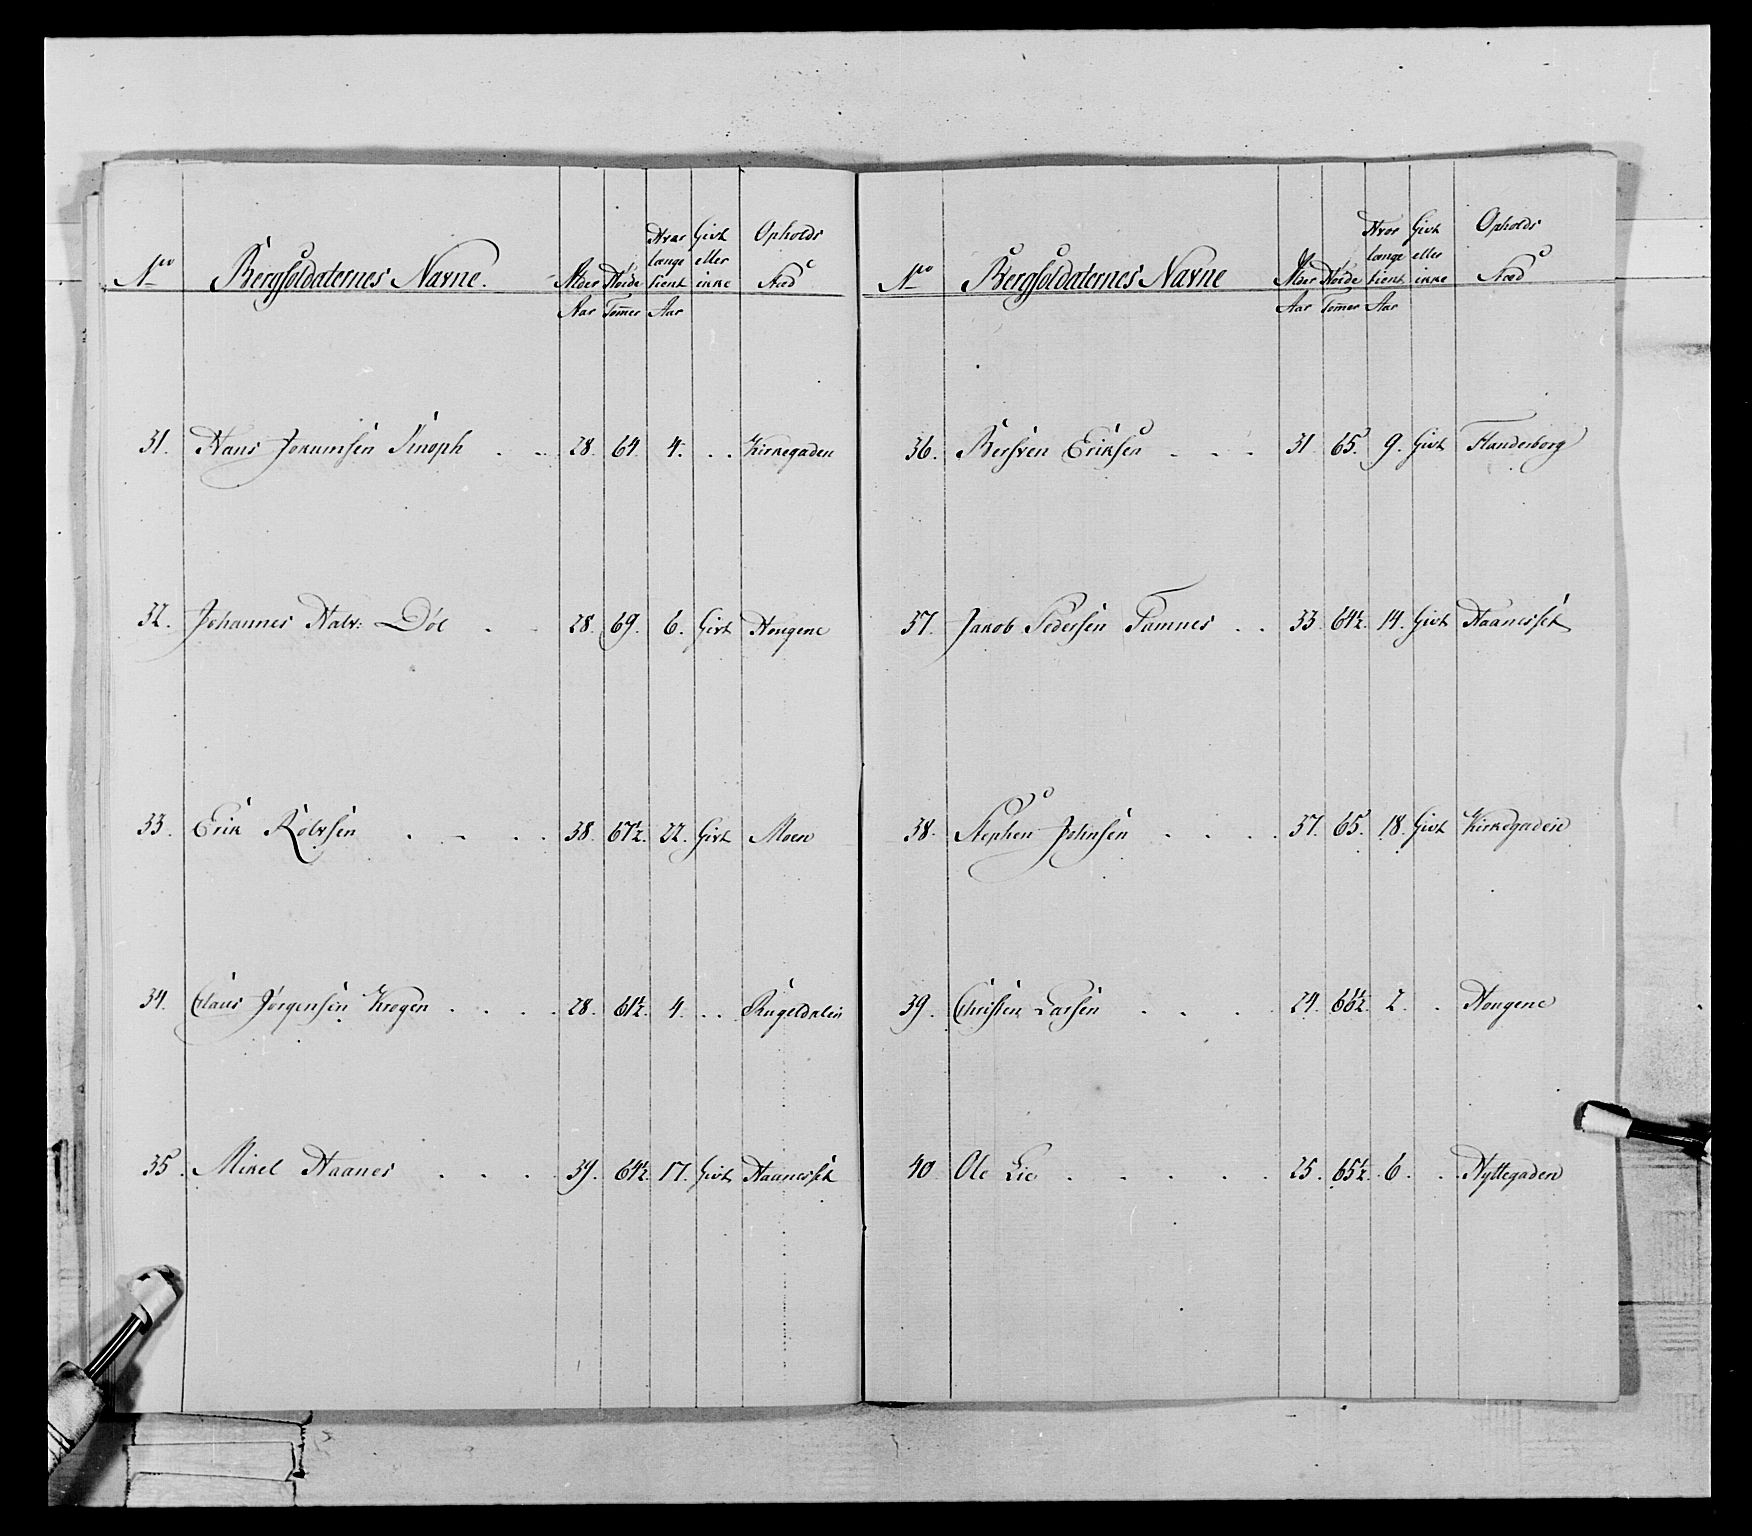 No Bergsoldaternes Navne. Alder Aar Höide Tommer Hvor længe tient Aar Givt eller ikke Opholds Sted
31. Hans Jokumsen Sinoph . . 28. 64. 4. . . Kirkegaden
32. Johannes Halv: Döl . . 28. 69. 6. Givt Hougene
33. Erik Rolvsen . . . . 38. 67½. 22. Givt Moen
34. Claus Jörgensen Krogen . . . . 28. 61½. 4. . . Rugeldalen
35. Mikel Haanes . . . 39. 64½. 17. Givt Haanesset
No Bergsoldaternes Navne Alder Aar Höide Tommer Hvor længe tient Aar Givt eller ikke Opholds Sted
36. Bersven Eriksen . . . 31 65. 9. Givt Flanderborg
37. Jakob Pedersen Tamnes . . 33. 64½. 14. Givt Haanesset
38. Stephen Johnsen . . . . 37. 65. 18. Givt Kirkegaden
39. Christen Larsen . . . . 24. 66½. 2. . Hougene
40 Ole Lie . . . . . 25. 65½. 6. . Hyttegaden